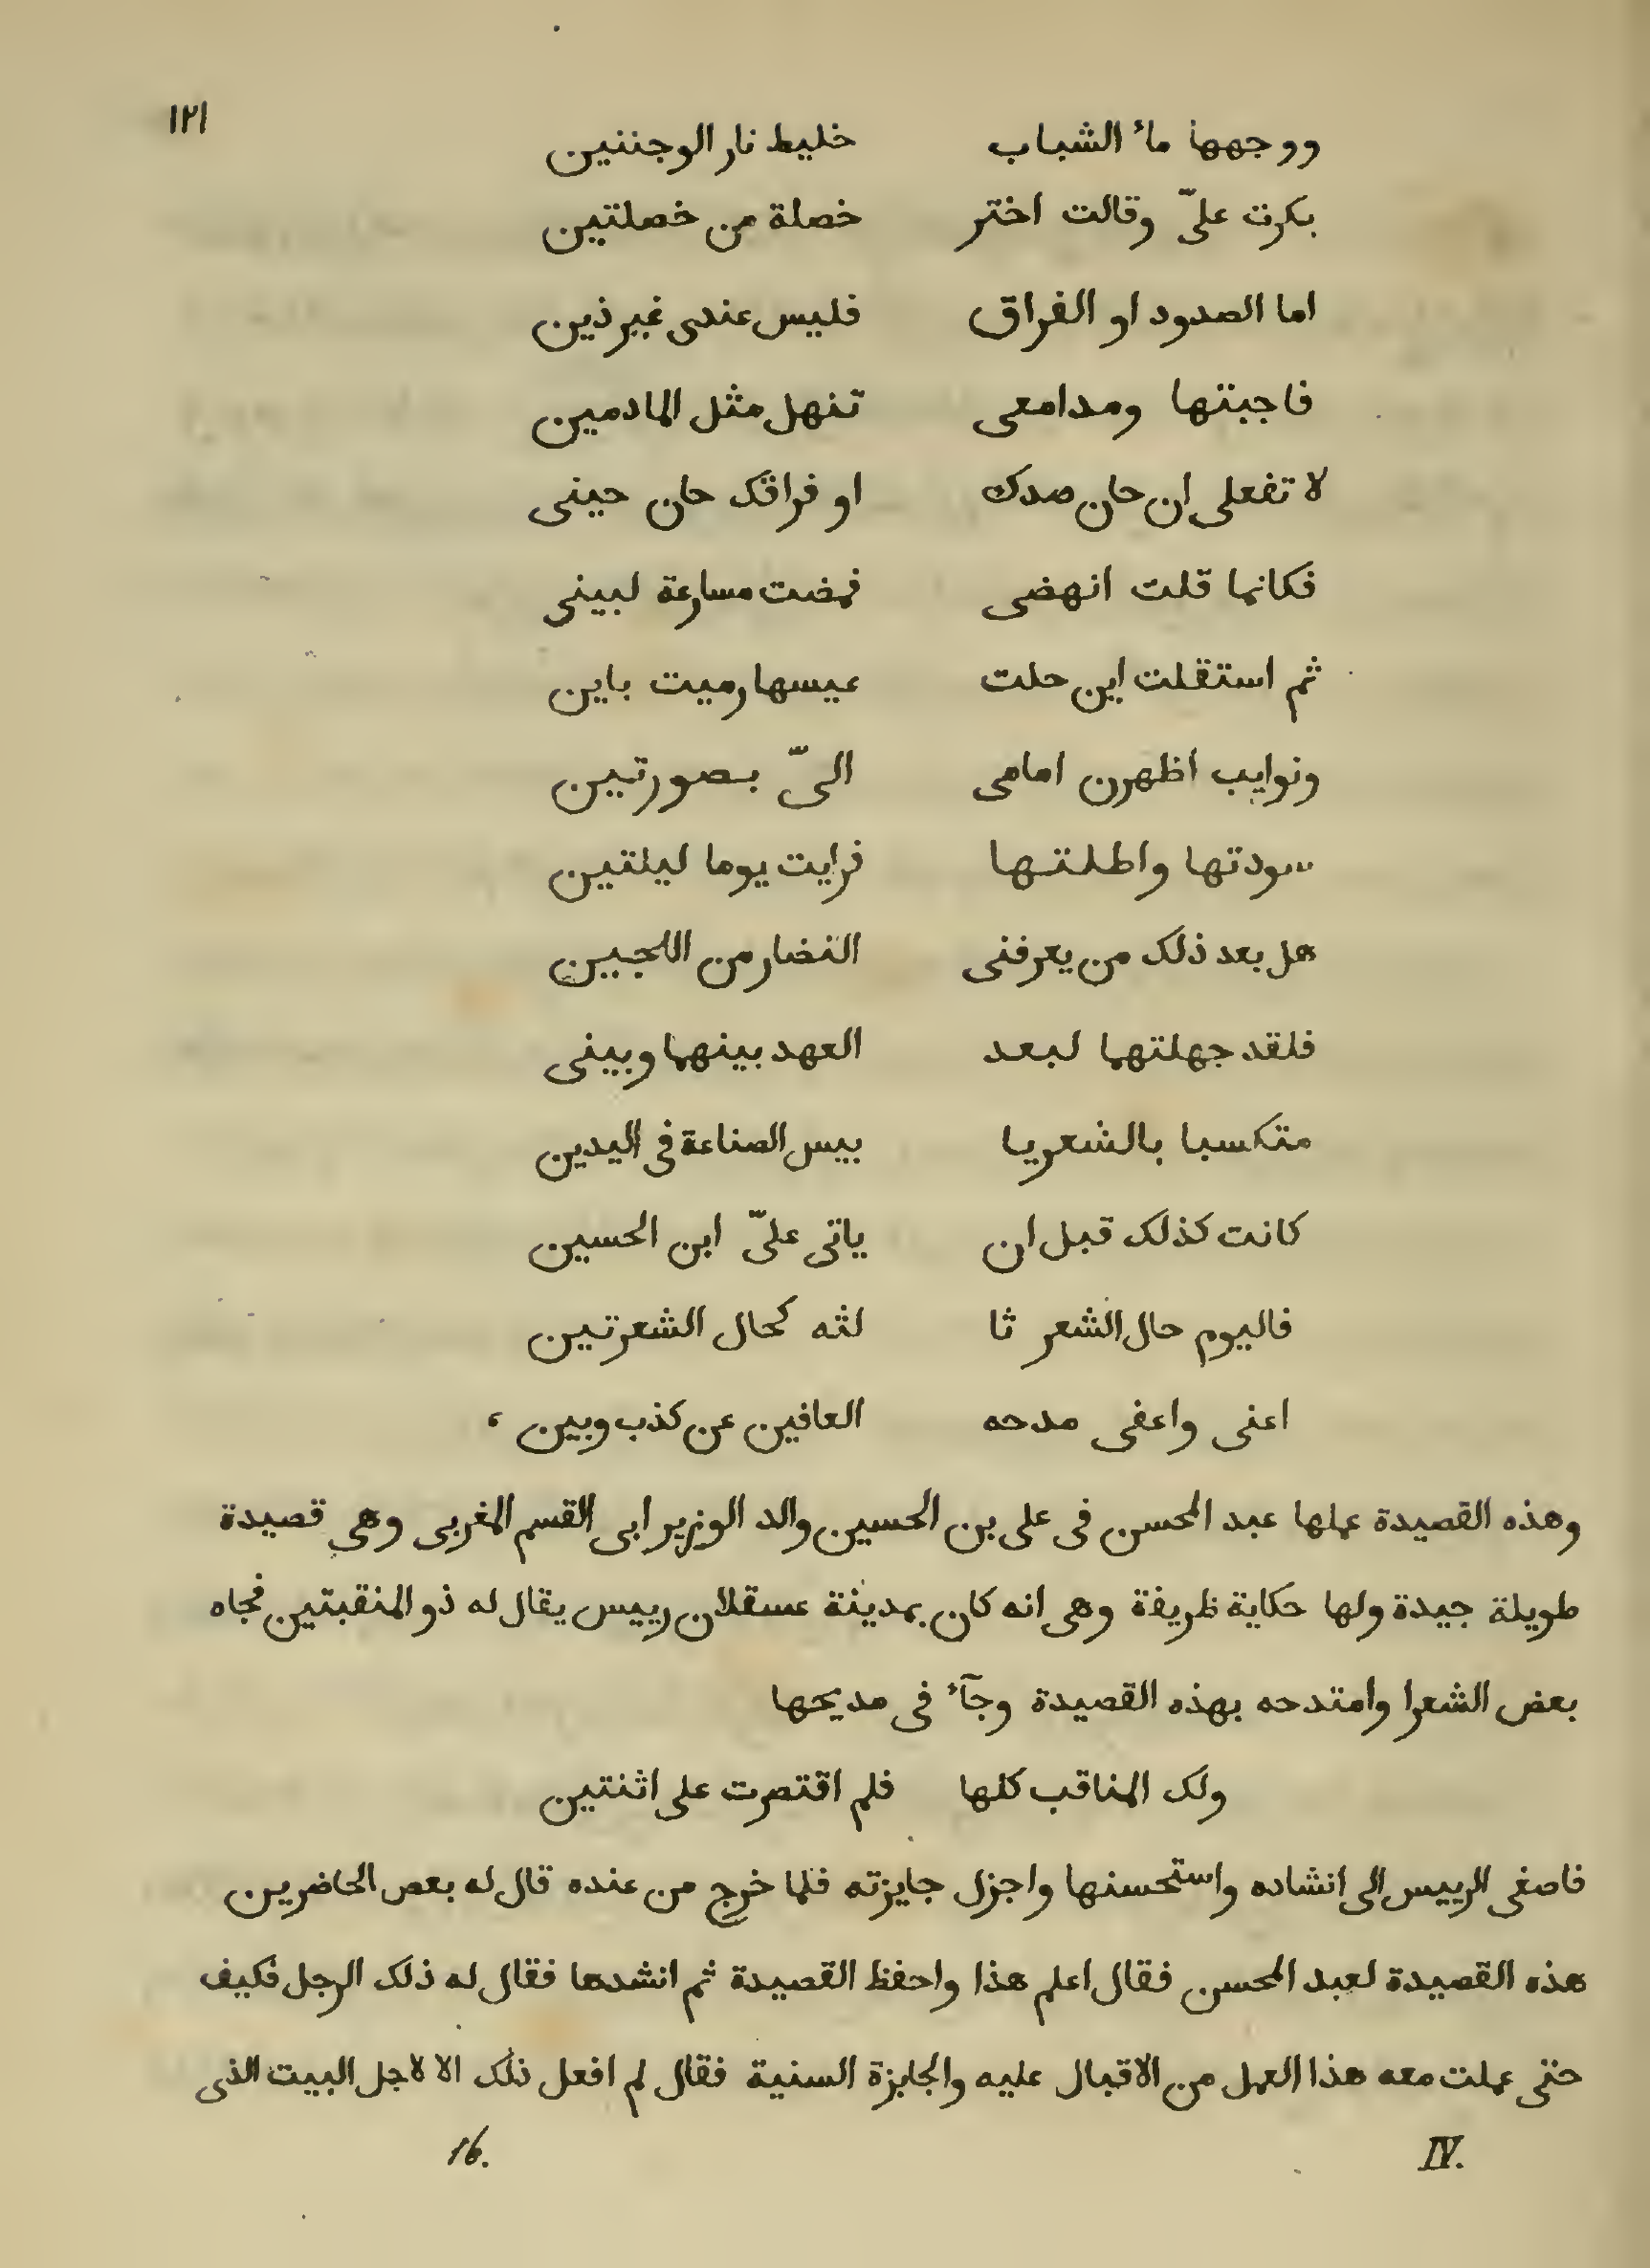 ١٢١
ووجهها ماء الشباب خليط نار الوجنتين
بكرت علىّ وقالت اختر خصلة من خصلتين
اما الصدود او الفراق فليس عندى غير ذين
فاجبتها ومدامعى تنهل مثل المادمين
لا تفعلى ان حان صدك او فراقك حان حينى
فكانما قلت انهضى فمضت مسارعة لبينى
ثم استقلت اين حلت عيسها رميت باين
ونوايب اظهرن امامى الىّ بصورتين
سودتها واطلتها فرايت يوما ليلتين
هل بعد ذلك من يعرفنى النضار من اللجين
فلقد جهلتهما لبعد العهد بينهما وبينى
متكسبا بالشعر يا بيس الصناعة فى اليدين
كانت كذلك قبل ان ياتى علىّ ابن الحسين
فاليوم حال الشعر ثا لثه كحال الشعرتين
اعنى واعفى مدحه العافين عن كذب وبين ،
وهذه القصيدة عملها عبد المحسن فى على بن الحسين والد الوزير ابى القسم المغربى وهى قصيدة
طويلة جيدة ولها حكاية ظريفة وهى انه كان بمدينة عسقلان رييس يقال له ذو المنقبتين فجاه
بعض الشعرا وامتدحه بهذه القصيدة وجآء فى مديحها
ولك المناقب كلها فلم اقتصرت على اثنتين
فاصغى الرييس الى انشاده واستحسنها واجزل جايزته فلما خرج من عنده قال له بعص الحاضرين
هذه القصيدة لعبد المحسن فقال اعلم هذا واحفظ القصيدة ثم انشدها فقال له ذلك الرجل فكيف
حتى عملت معه هذا العمل من الاقبال عليه والجايزة السنية فقال لم افعل ذلك الا لاجل البيت الذى
IV. 16.